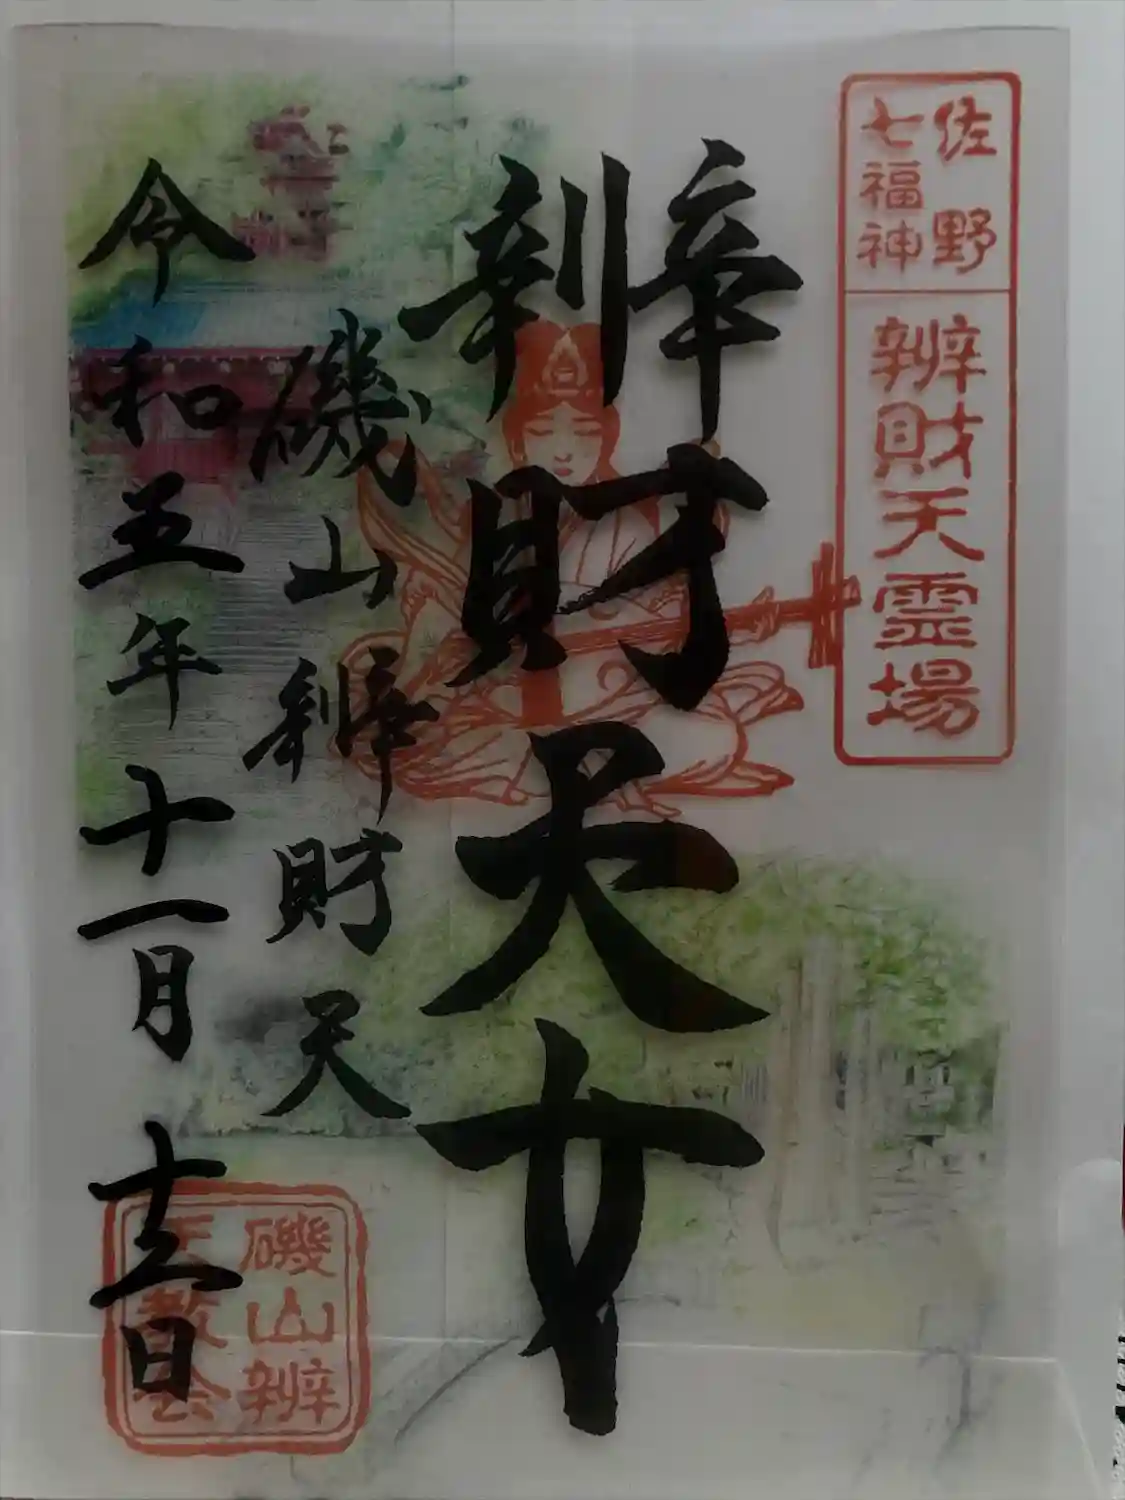 佐野
七福神
辨財天霊場
辨財天女
磯山辨財天
令和五年十一月十二日
磯山辨
天教会